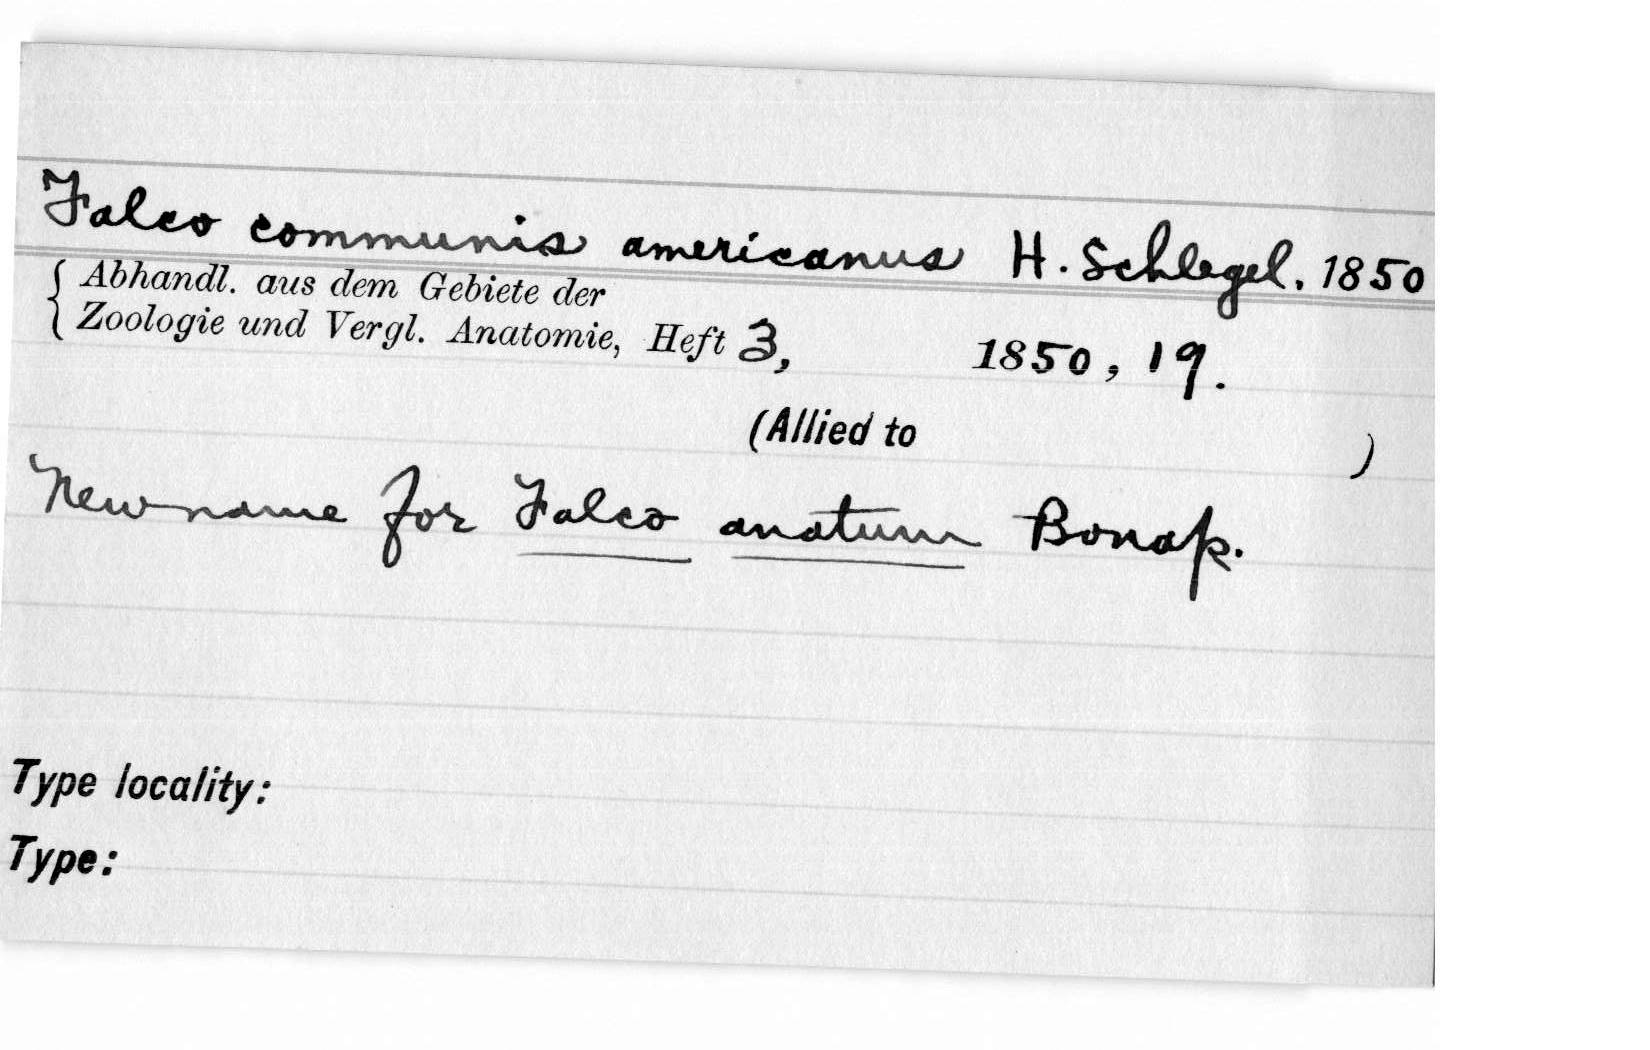 Falco communis americanus H. Schlegel. 1850
{ Abhandl. aus dem Gebiete der
Zoologie und Vergl. Anatomie, Heft 3, 1850, 19.
(Allied to )
New name for Falco anatum Bonap.
Type locality:
Type: